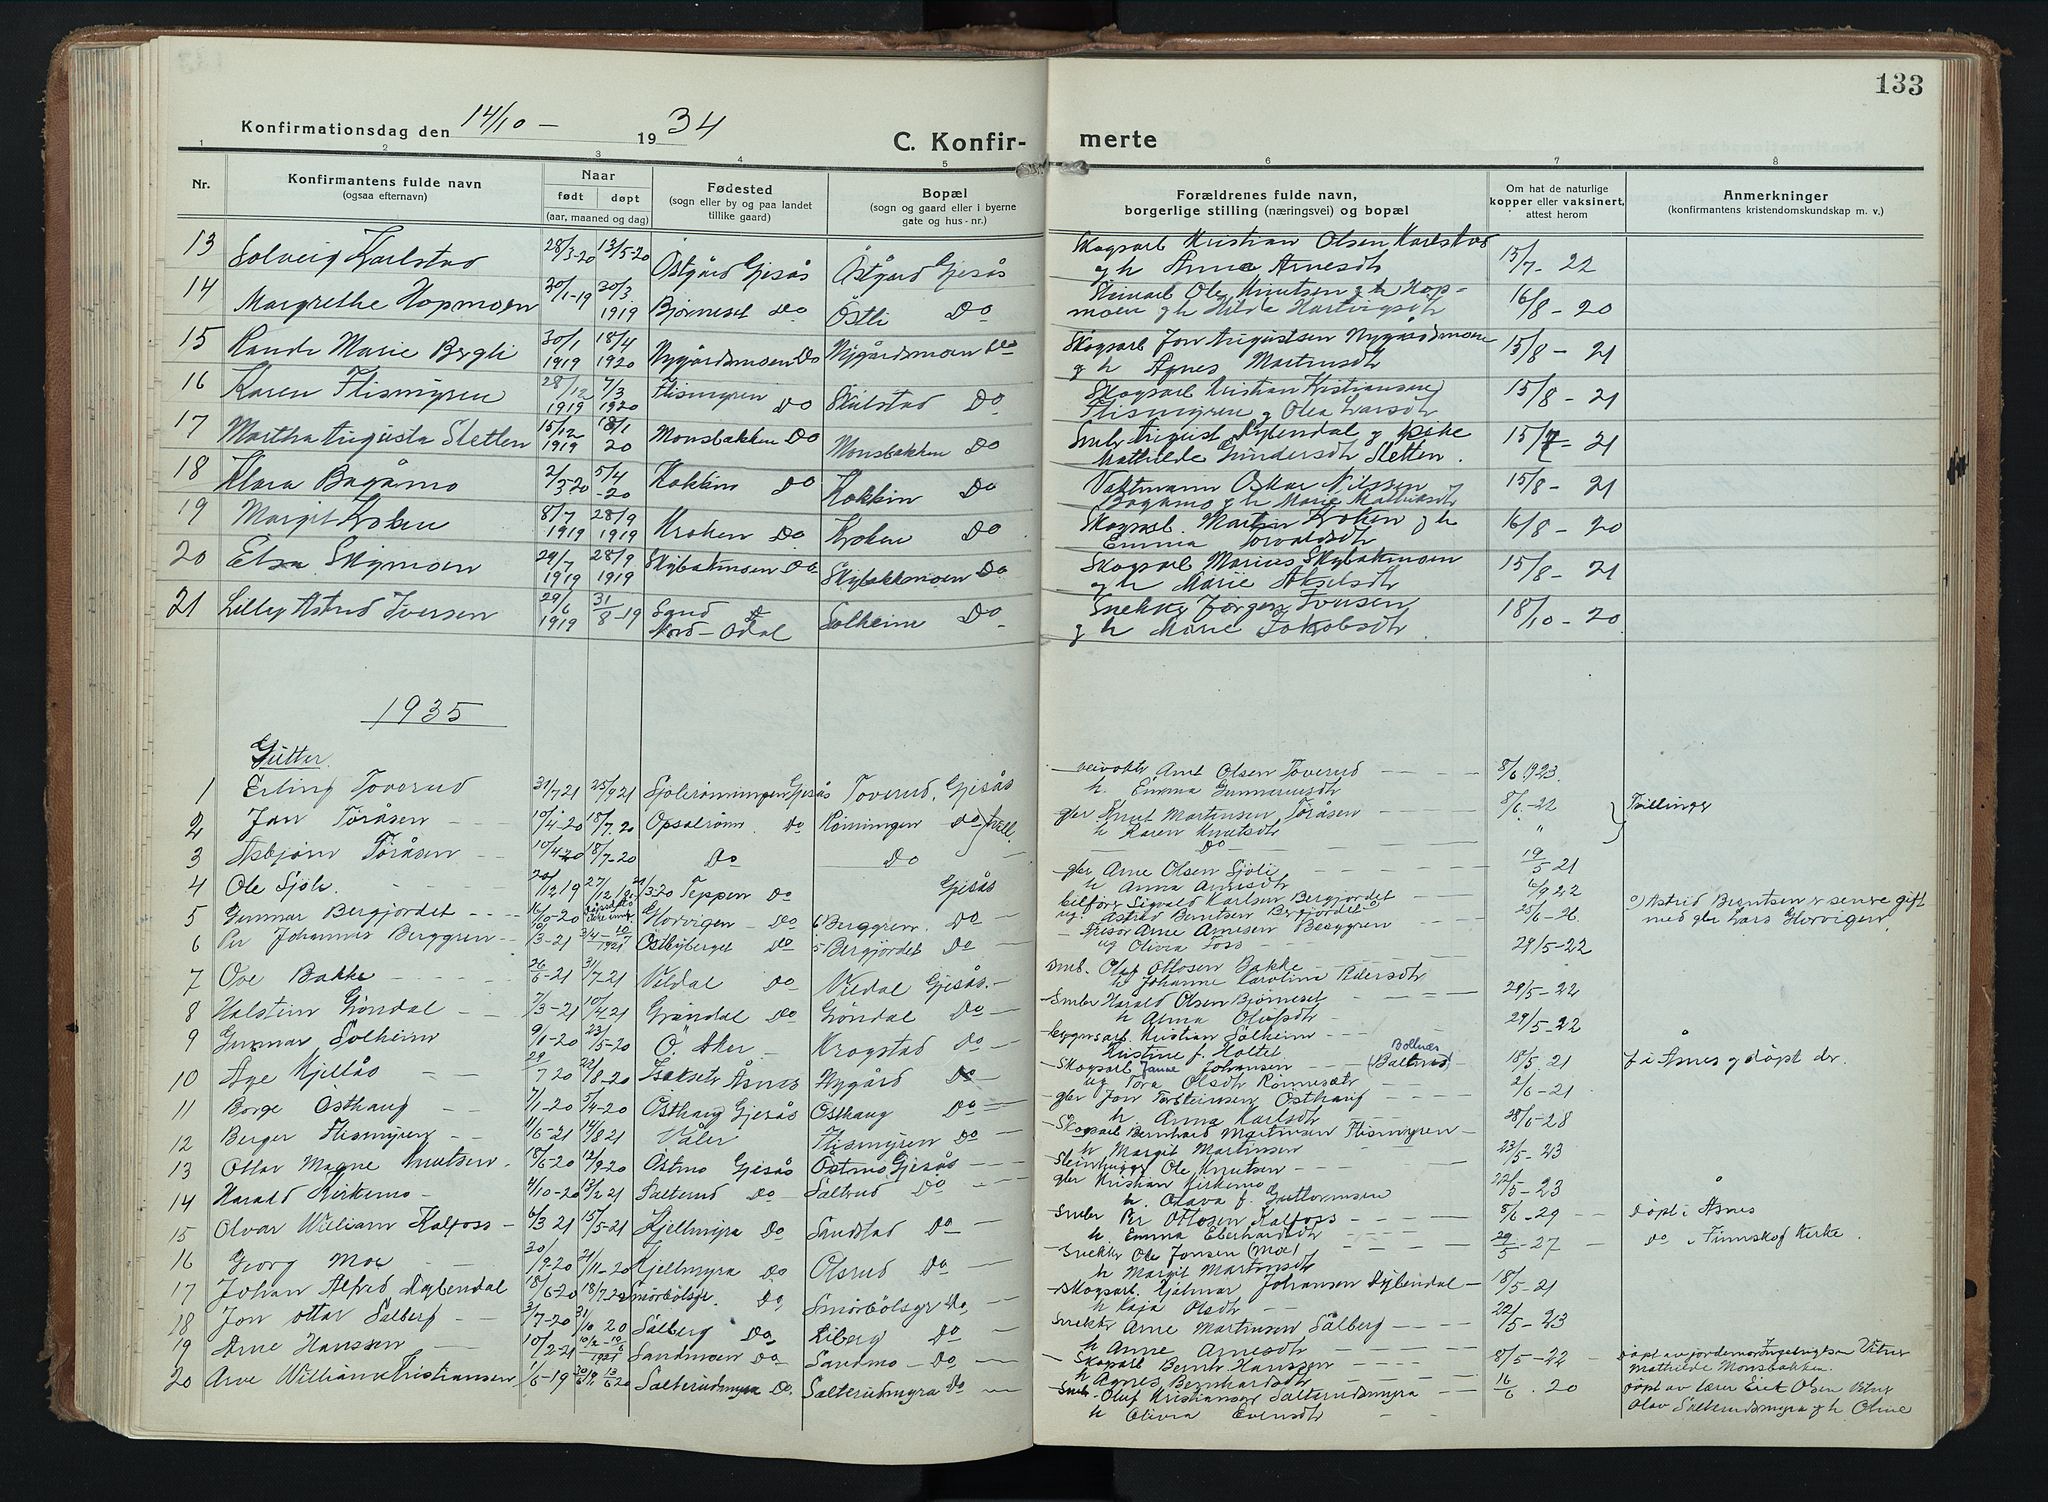 133
Konfirmationsdag den 14/10 - 1934
C. Konfir-
merte
1 2 3 4 5 6 7 8
Nr.
Konfirmantens fulde navn
(ogsaa efternavn)
Naar
født døpt
(aar, maaned og dag)
Fødested
(sogn eller by og paa landet
tillike gaard)
Bopæl
(sogn og gaard eller i byerne
gate og hus-nr.)
Forældrenes fulde navn,
borgerlige stilling (næringsvei) og bopæl
Om hat de naturlige
kopper eller vaksinert,
attest herom
Anmerkninger
(konfirmantens kristendomskundskap m. v.)
13 Solveig Karlstad 28/3-20 13/5-20 Östgård Gjesås Östgård Gjesås Skogsarb Kristian Olsen Karlstad 15/7-22
og h Anna Arnesdtr
14 Margrethe Hopmoen 20/1-19 30/3 1919 Björneset Do Östli Do Ole Knutsen og h Hop- 16/8-20
moen og h Hilda
15 Randi Marie Bergli 30/1 1919 18/4 1920 Nygårdsmoen Do Nygårdsmoen Do Skogsarb Jon Augustsen Nygårdsmoen 15/8-21
og h Agnes Martinsdtr
16 Karen Flismyren 28/12 1919 7/3 1920 Flismyren Do Skulstad Do Skogsarb Kristian Kristiansen 15/8-21
Flismyren og Olea Larsdtr
17 Martha Augusta Sletten 15/12 1919 18/1 20 Monsbakken Do Monsbakken Do Smbr August Kybendal og pike 15/7-21
Mathilde Gundersdtr Sletten.
18 Klara Bagåmo 2/3-20 5/4-20 Kokkin Do Kokkin Do Vaktmann Oskar Nilssen 15/8-21
Bagåmo og h Marie Mathiasdtr
19 Margit Kroken 8/7 1919 28/9 1919 Kroken Do Kroken Do Skogsarb. Martin Kroken og h 16/8-20
Emma Torvaldsdtr
20 Elsa Skymoen 29/7 1919 28/9 1919 Skybakmoen Do Skybakkmoen Do Skogsarb Marius Skybakmoen 15/8-21
og h Marie Akselsdtr
21 Lilly Astrid Iversen 29/6 1919 31/8-19 Sand Nord-Odal Solheim Do Snekker Jørgen Iversen 18/10-20
og h Marie Jakobsdtr
1935
Gutter.
1 Erling Toverud 31/7 21 25/9 21 Gjesås Toverud, Gjesås veivokter Arnt Olsen Toverud 8/6 1923.
h. Emma Gunnariusdtr
2 Jan Töråsen 10/4-20 18/7-20 Opsalrönn. Do Rönningen Do gbr Knut Martinsen Töråsen 8/6-22 Tvillinger
h Karen Knutsdtr
3 Asbjørn Töråsen 10/4-20 18/7-20 Do Do Do "
4 Ole Sjöli 20/12 19 Teppen Do Gjesås gbr Arne Olsen Sjöli 19/5-21
h Anna Arnesdtr
5 Gunnar Bergjordet 16/10-20 Glorvigen Do 6 Berggren. Do bilfører Sigvald Karlsen Bergjordet 6/9 22 0) Astrid Berntsen er senere gift
ug Astrid Berntsen Bergjordet 0) 25/6-26. med gbr Lars Glorvigen.
6 Per Johannes Berggren 10/3-21 Östbyberget Do 5 Bergjordet Do Frisør Arne Arnesen Berggren
ug Olivia Foss 29/5-22
7 Ove Bakke 26/6-21 31/7-21 Vildal Do Vildal Gjesås. Smb. Olaf Ottosen Bakke
h Johanne Karoline Pedersdtr
8 Halstein Gjöndal 7/3-21 10/4 21 Gröndal Do Gjöndal Do Smbr Harald Olsen Björneset 29/5-22
h Alma Olufsdtr
9 Gunnar Solheim 9/1-20 23/5-20 Ö. Aker Krogstad Do bygnsarb. Kristian Solheim 29/5-22
Kristine f. Holtet Bollnäs
10 Åge Kjellås 29/7 20 22/8-20 Isakset Åsnes Nygård Do Skogsarb Janne Johansen (Balterud) 18/5 21 f i Åsnes og døpt der.
ug Tora Olsdtr Rönnesætr
11 Borge Östhaug 7/1-20 5/4-20 Östhaug Gjesås Östhaug Do gbr Jon Torsteinsen Östhaug 2/6-21
h Anna Karlsdtr
12 Berger Flismyren 4/6-21 14/8 21 Våler Flismyren Do Skogsarb Bernhard Martinsen Flismyren 28/6-28
h Margit Martinsen
13 Ottar Magne Knutsen 18/6-20 12/9-20 Östmo Gjesås Östmo Gjesås Steinhugger Ole Knutsen 22/5-23
14 Harald Kirkemo 4/10-20 13/2 21 Salterud Do Saltrud Do gbr Kristian Kirkemo 22/5-23
h. Olava f. Guttormsen
15 Olvar William Kalfoss 6/3 21 15/5-21 Kjellmyra Do Sandstad Do Smbr Per Ottosen Kalfoss 8/6-29 döpt i Åsnes
h. Emma Eberhardsdtr
16 Georg Moe 30/9 20 21/11-20 Kjellmyra Do Olsrud Do Snekker Ole Jonsen (Moe) 29/5-27 Do i Finnskog Kirke.
h Margit Martinsdtr
17 Johan Alfred Kybendal 18/6-20 18/7 20 Smörbölsgr. Do Smörbölsgr Do Skogsarb. Hjalmar Johansen Kybendal 18/5-21
h Kaja Olsdtr
18 Jon Ottar Salberg 3/7-20 31/10 20 Salberg Do Liberg Do Snekker Arne Martinsen Salberg 22/5-23
h Anne Arnesdtr
19 Arne Hanssen 10/2-21 10/2-10/6 1921 Sandmoen Do Sandmo Do Skogsarb Bernh Hanssen 8/5-22 döpt av jordemor Vitner
h Agnes Bernhardsdtr Mathilde Monsbakken.
20 Arve William Kristiansen 1/6-19 Salterudmyra Do. Salterudmyra Do Smb. Oluf Kristiansen Salterudmyra 16/6 20 döpt av lærer Erik Olsen Vitner
h Olivia Evensdtr Olav Salterudsmyra og h Oline